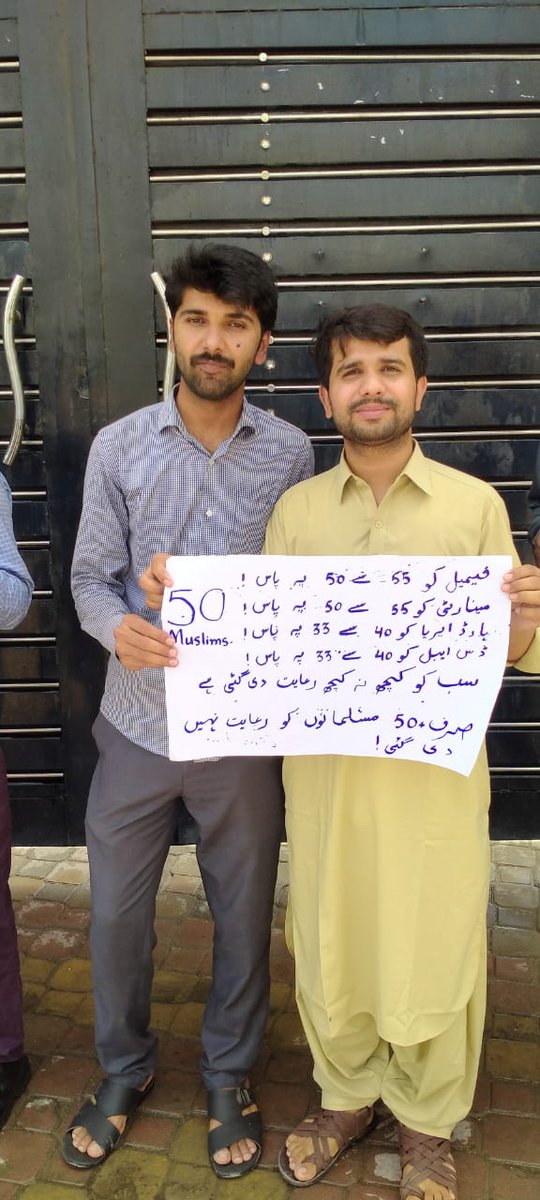 فیمیل کو 55 سے 50 پہ پاس!
مینارٹی کو 55 سے 50 پہ پاس!
ہارڈ ایریا کو 40 سے 33 پہ پاس!
ڈس ایبل کو 40 سے 33 پہ پاس!
سب کو کچھ نہ کچھ رعایت دی گئی ہے
صرف 50+ مسلمانوں کو رعایت نہیں
دی گئی!
50
Muslims.